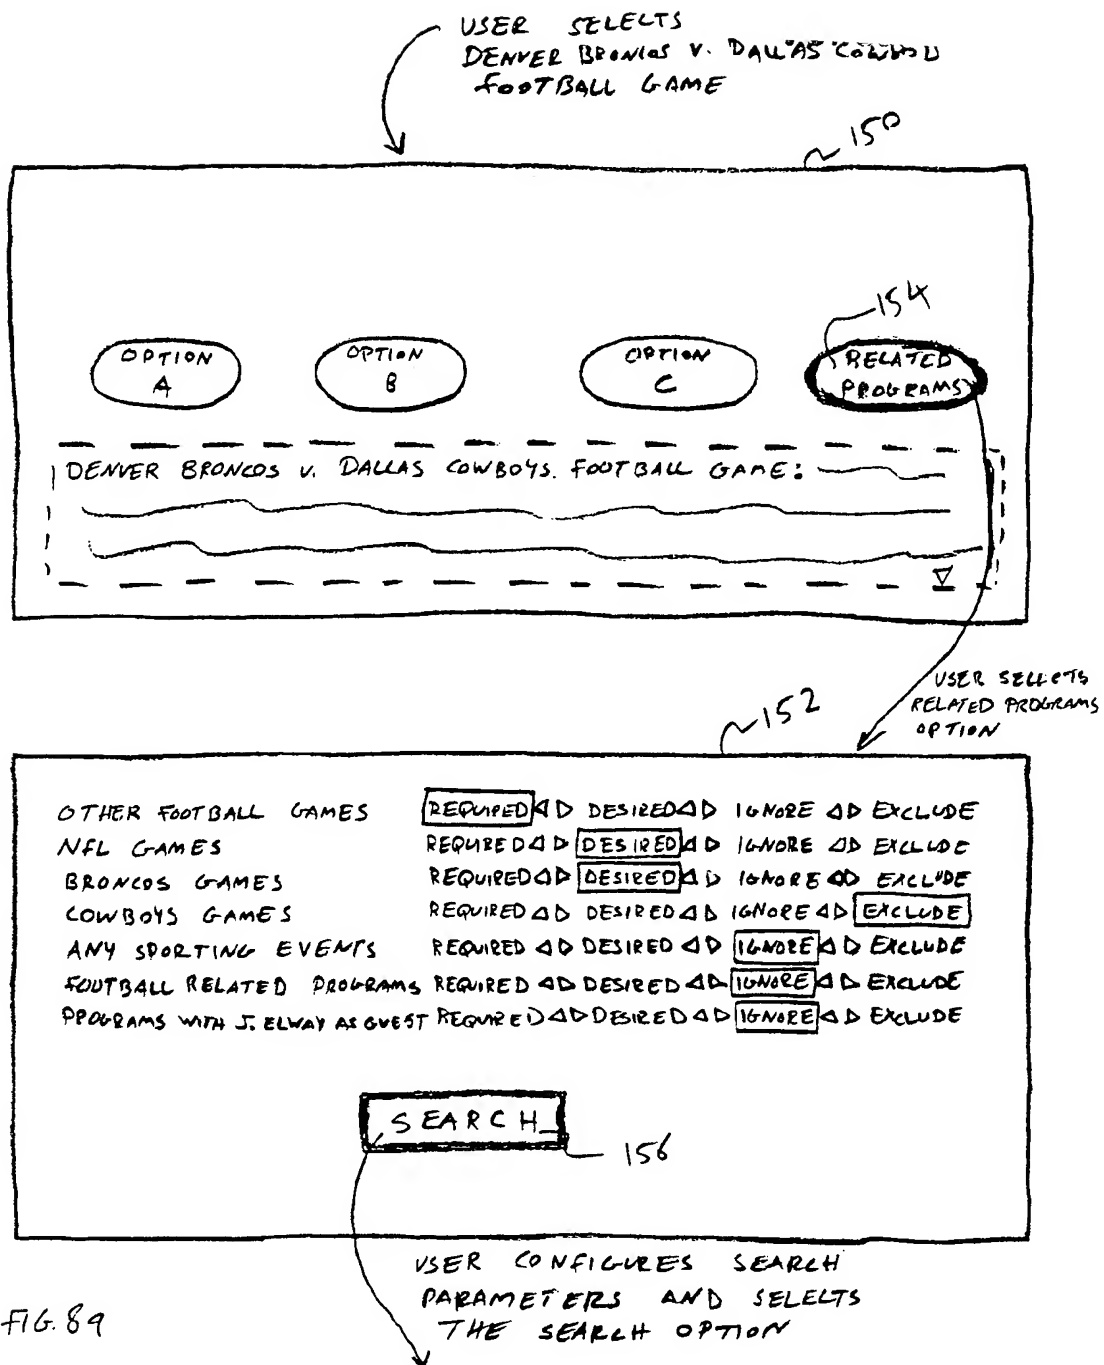 USER SELECTS
DENVER BRONCOS V. DALLAS COWBOY
FOOTBALL GAME
150
154
OPTION
A
OPTION
B
OPTION
C
RELATED
PROGRAMS
DENVER BRONCOS V. DALLAS COWBOYS. FOOTBALL GAME:
USER SELECTS
RELATED PROGRAMS
OPTION
152
OTHER FOOTBALL GAMES REQUIRED ◁ ▷ DESIRED ◁ ▷ IGNORE ◁ ▷ EXCLUDE
NFL GAMES REQUIRED ◁ ▷ DESIRED ◁ ▷ IGNORE ◁ ▷ EXCLUDE
BRONCOS GAMES REQUIRED ◁ ▷ DESIRED ◁ ▷ IGNORE ◁ ▷ EXCLUDE
COWBOYS GAMES REQUIRED ◁ ▷ DESIRED ◁ ▷ IGNORE ◁ ▷ EXCLUDE
ANY SPORTING EVENTS REQUIRED ◁ ▷ DESIRED ◁ ▷ IGNORE ◁ ▷ EXCLUDE
FOOTBALL RELATED PROGRAMS REQUIRED ◁ ▷ DESIRED ◁ ▷ IGNORE ◁ ▷ EXCLUDE
PROGRAMS WITH J. ELWAY AS GUEST REQUIRED ◁ ▷ DESIRED ◁ ▷ IGNORE ◁ ▷ EXCLUDE
SEARCH
156
USER CONFIGURES SEARCH
PARAMETERS AND SELECTS
THE SEARCH OPTION
FIG. 8a